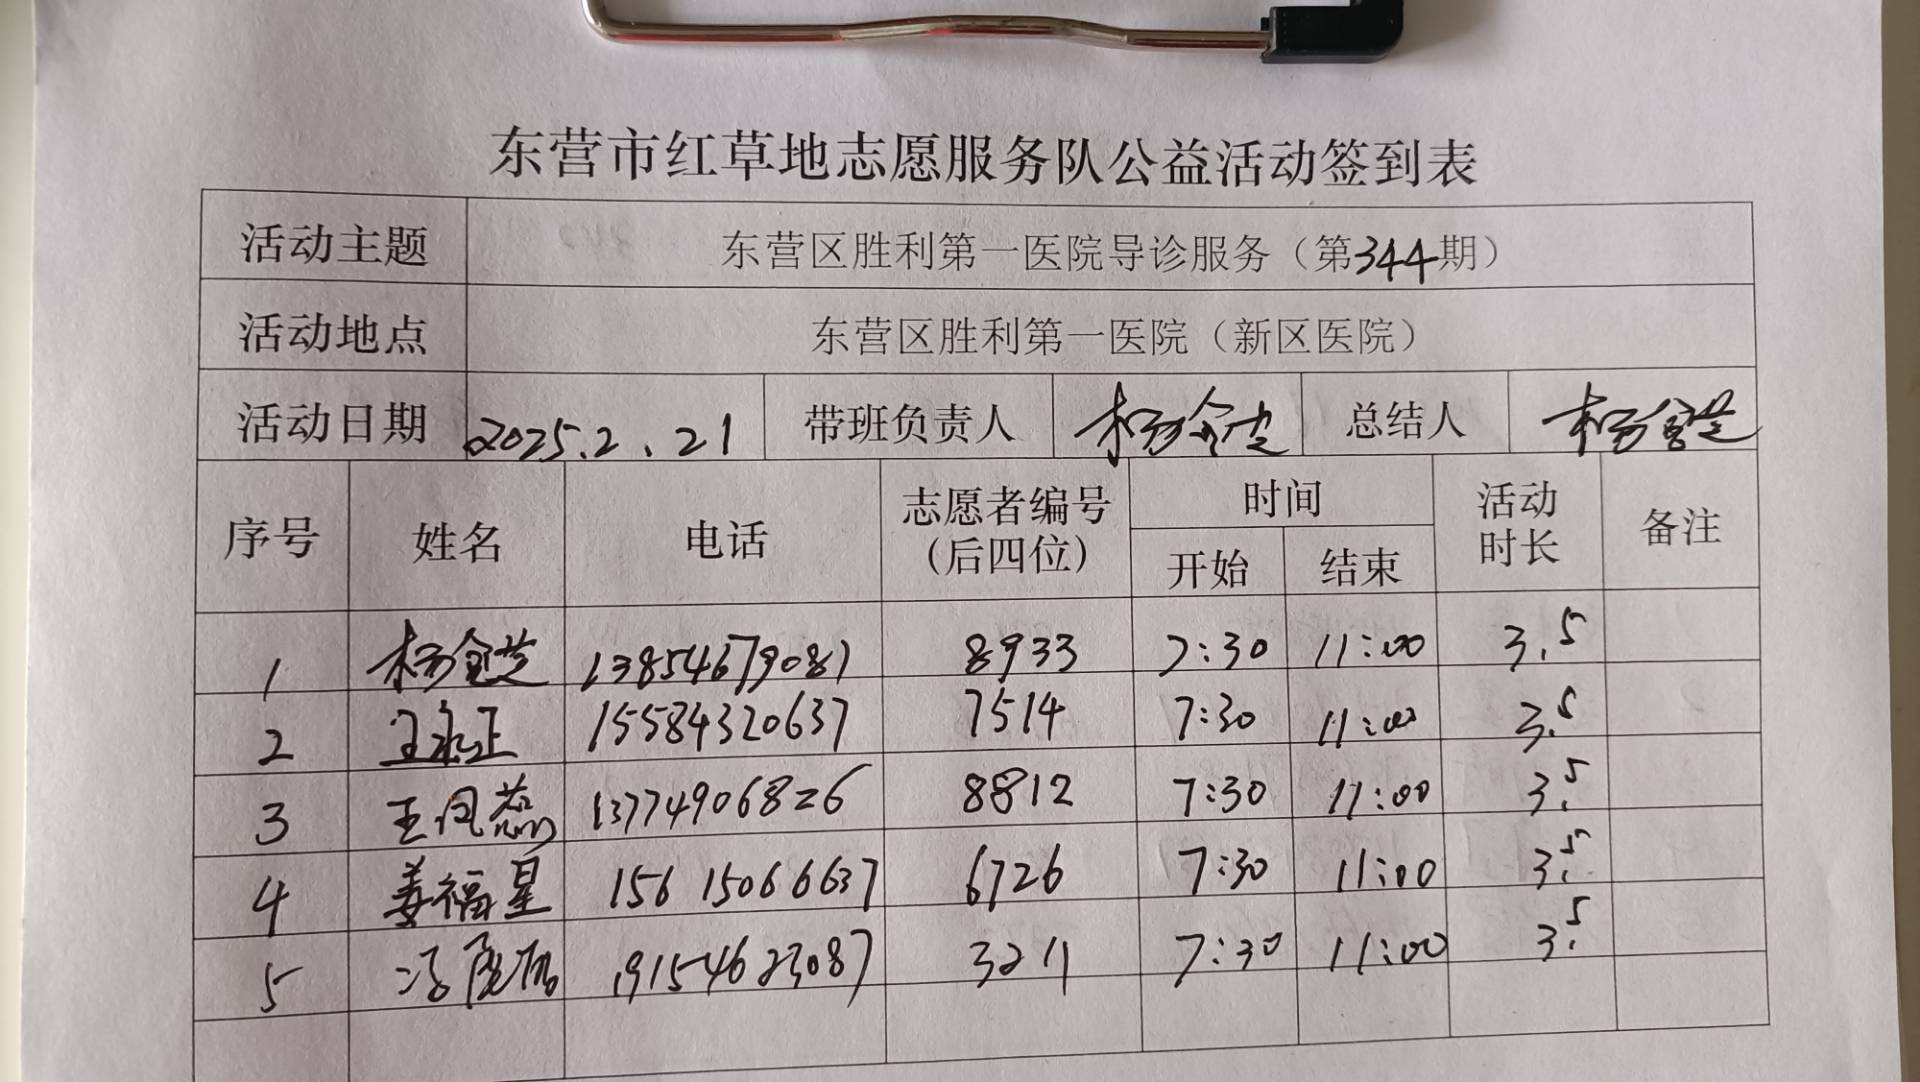 东营市红草地志愿服务队公益活动签到表
活动主题 东营区胜利第一医院导诊服务（第344期）
活动地点 东营区胜利第一医院（新区医院）
活动日期 2025.2.21 带班负责人 杨金芝 总结人 杨金芝
序号 姓名 电话 志愿者编号（后四位） 时间 开始 结束 活动时长 备注
1 杨金芝 13854679081 8933 7:30 11:00 3.5
2 王永正 15584320637 7514 7:30 11:00 3.5
3 王凤 13774906826 8812 7:30 11:00 3.5
4 姜福星 15615066637 6726 7:30 11:00 3.5
5 冯 19154623087 3211 7:30 11:00 3.5